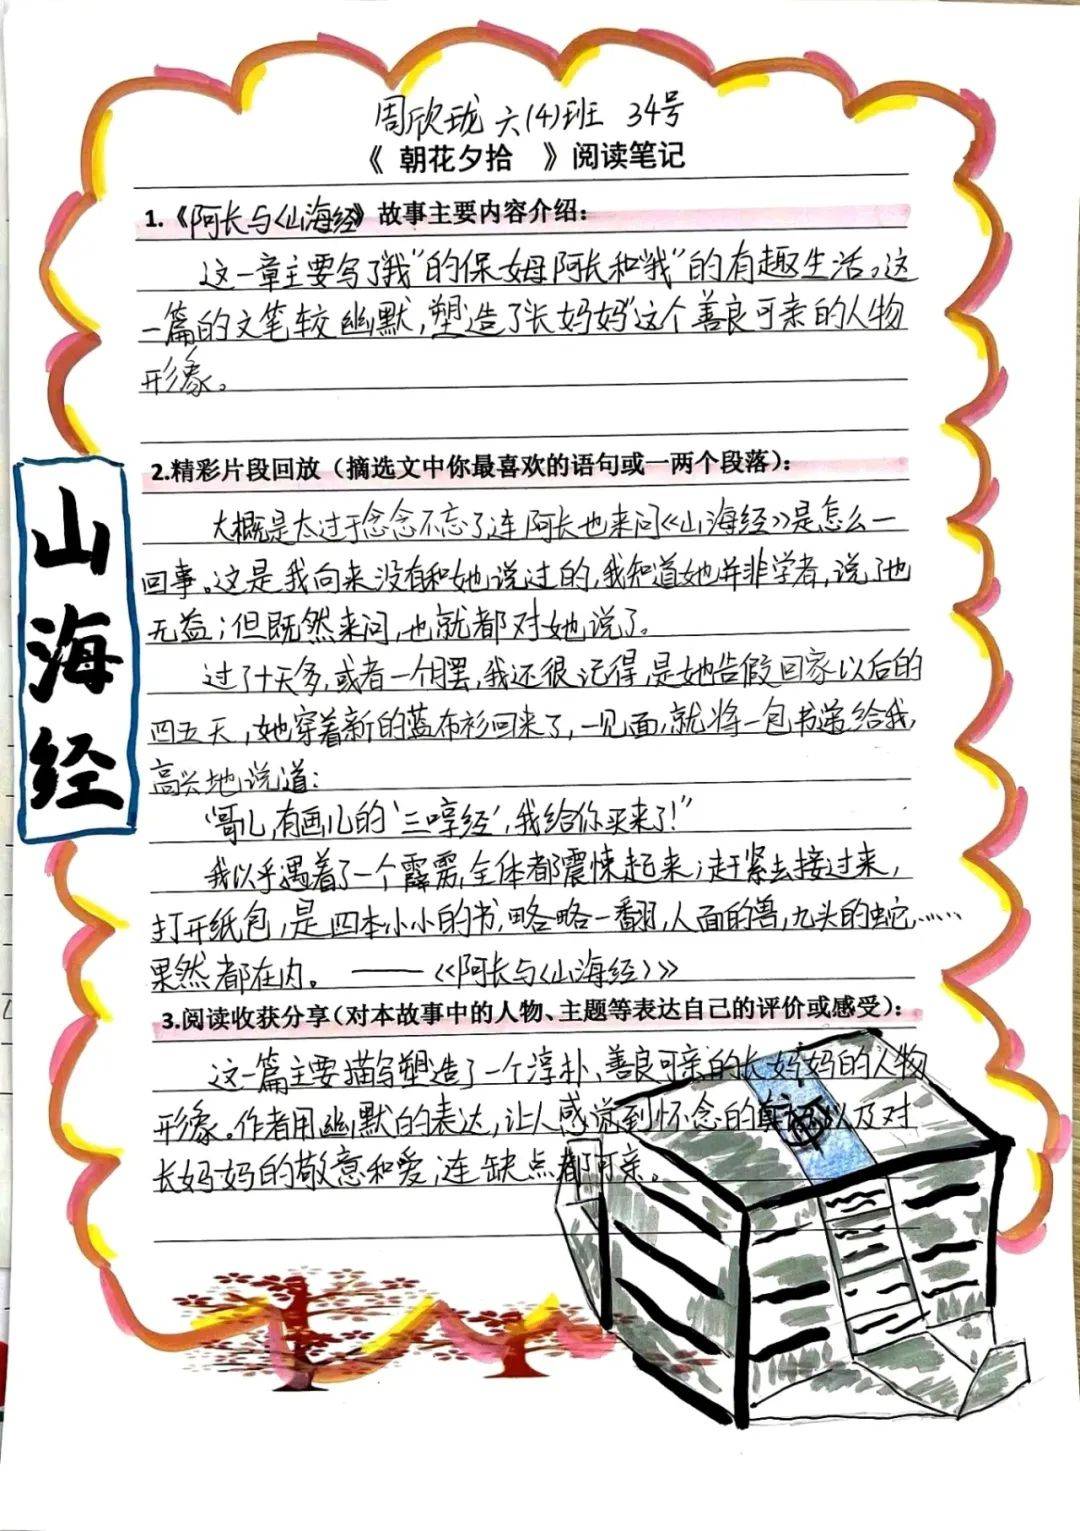 周欣珑 六(4)班 34号
《 朝花夕拾 》阅读笔记
1.《阿长与〈山海经》故事主要内容介绍：
这一章主要写了"我"的保姆阿长和"我"的有趣生活。这
一篇的文笔较幽默，塑造了"长妈妈"这个善良可亲的人物
形象。
山海经
2.精彩片段回放（摘选文中你最喜欢的语句或一两个段落）：
大概是太过于念念不忘了，连阿长也来问《山海经》是怎么一
回事。这是我向来没有和她说过的，我知道她并非学者，说了也
无益；但既然来问，也就都对她说了。
过了十天多，或者一个月罢，我还很记得，是她告假回家以后的
四五天，她穿着新的蓝布衫回来了，一见面，就将一包书递给我，
高兴地说道：
"哥儿，有画儿的‘三哼经’，我给你买来了！"
我似乎遇着了一个霹雳，全体都震悚起来；赶紧去接过来，
打开纸包，是四本小小的书，略略一翻，人面的兽，九头的蛇……
果然都在内。 ——《阿长与〈山海经〉》
3.阅读收获分享（对本故事中的人物、主题等表达自己的评价或感受）：
这一篇主要描写塑造了一个淳朴、善良可亲的长妈妈的人物
形象。作者用幽默的表达，让人感觉到怀念的真诚以及对
长妈妈的敬意和爱，连缺点都可亲。